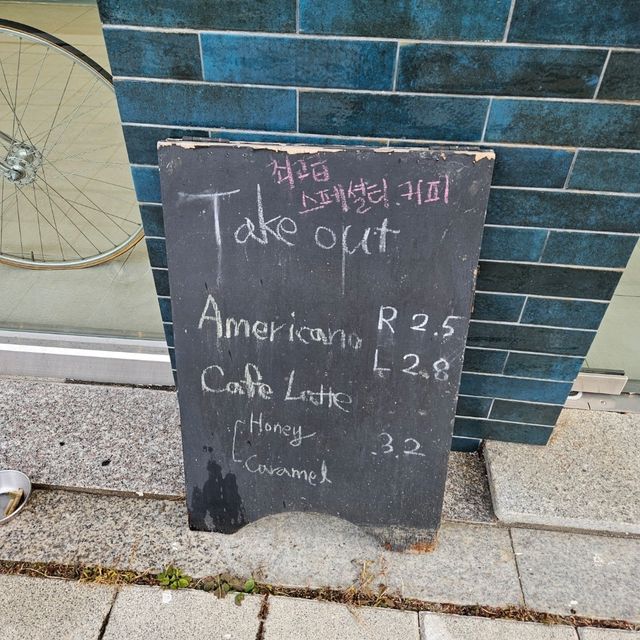 최고급
스페셜티 커피
Take out
Americano R 2.5
L 2.8
Cafe Latte
Honey 3.2
Caramel